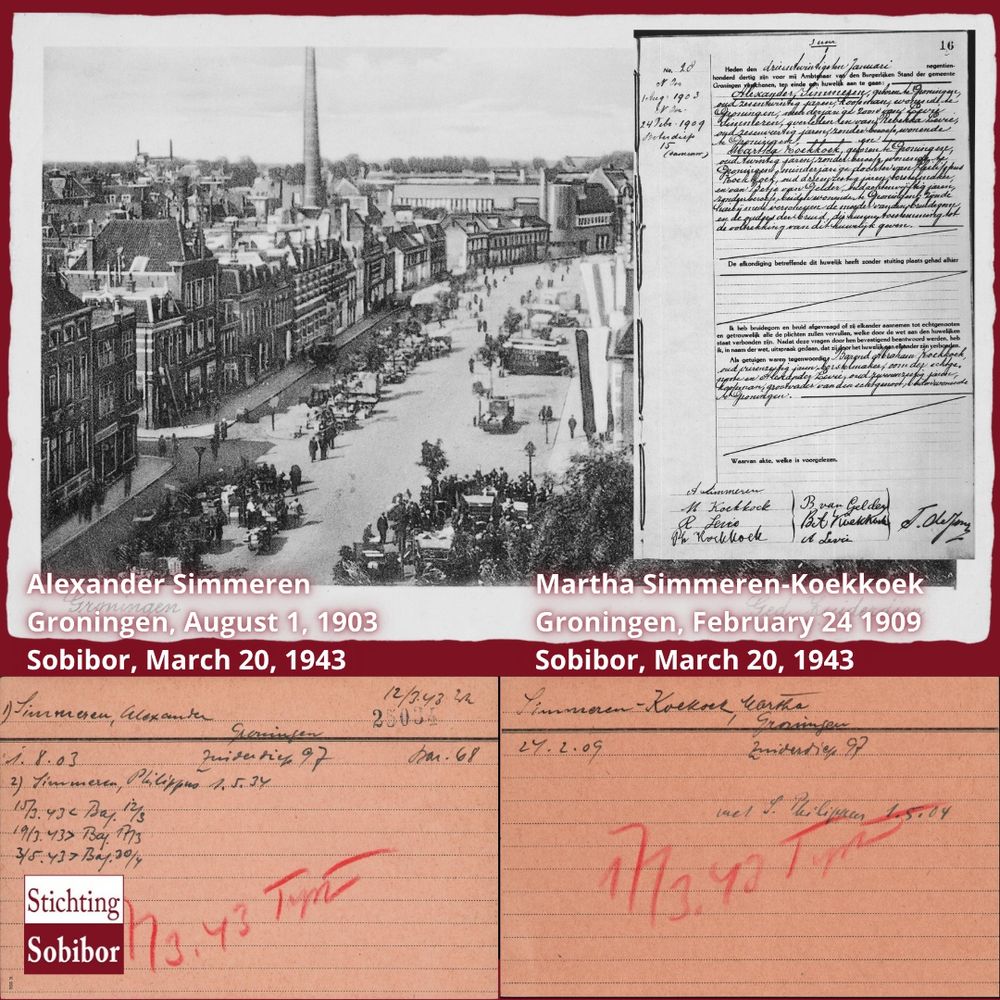 1 uur
16
No. 28
Heden den drieentwintigsten Januari negentien-
honderd dertig zijn voor mij Ambtenaar van den Burgerlijken Stand der gemeente
Groningen verschenen, ten einde een huwelijk aan te gaan:
Alexander Simmeren, geboren te Groningen,
oud zesentwintig jaren, koopman, wonende te
Groningen, meerderjarige zoon van
Simmeren, overleden en van Rebekka Levie,
jaren, zonder beroep, wonende
te Groningen, en
Martha Koekkoek, geboren te Groningen,
oud twintig jaren, zonder beroep, wonende te
Groningen, minderjarige dochter van Philippus
Koekkoek, oud jaren, borstelmaker
en van van Gelder, jaren,
zonder beroep, beiden wonende te Groningen.
1 Aug. 1903
24 Febr. 1909
15
De afkondiging betreffende dit huwelijk heeft zonder stuiting plaats gehad alhier
Ik heb bruidegom en bruid afgevraagd of zij elkander aannemen tot echtgenooten
en getrouwelijk alle de plichten zullen vervullen, welke door de wet aan den huwelijken
staat verbonden zijn. Nadat deze vragen door hen bevestigend beantwoord werden, heb
ik, in naam der wet, uitspraak gedaan, dat zij door het huwelijk aan elkander zijn verbonden.
Als getuigen waren tegenwoordig: Barend Abraham Koekkoek,
oud jaren, borstelmaker, oom der echtge-
noote en Alexander Levie, oud jaren,
koopman, grootvader van den echtgenoot, beiden wonende
te Groningen.
Waarvan akte, welke is voorgelezen.
A Simmeren
M Koekkoek
R Levie
Ph Koekkoek
B van Gelder
BA Koekkoek
A Levie
Groningen
Alexander Simmeren
Groningen, August 1, 1903
Sobibor, March 20, 1943
Martha Simmeren-Koekkoek
Groningen, February 24 1909
Sobibor, March 20, 1943
12/3.43
1) Simmeren, Alexander
Groningen
1. 8. 03 Zuiderdiep 97 Bar. 68
2) Simmeren, Philippus 1. 5. 34
15/3. 43 < Bar. 12/3
19/3. 43 > Bar. 17/3
3/5. 43 > Bar. 30/4
17/3. 43 Tspt
Stichting
Sobibor
Simmeren-Koekoek, Martha
Groningen
24. 2. 09 Zuiderdiep 97
met S. Philippus 1.5.04
17/3. 43 Tspt